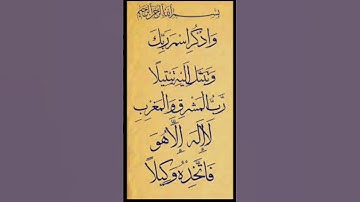 بسم الله الرحمن الرحيم
وَاذْكُرِ اسْمَ رَبِّكَ
وَتَبَتَّلْ إِلَيْهِ تَبْتِيلًا
رَبُّ الْمَشْرِقِ وَالْمَغْرِبِ
لَا إِلَٰهَ إِلَّا هُوَ
فَاتَّخِذْهُ وَكِيلًا